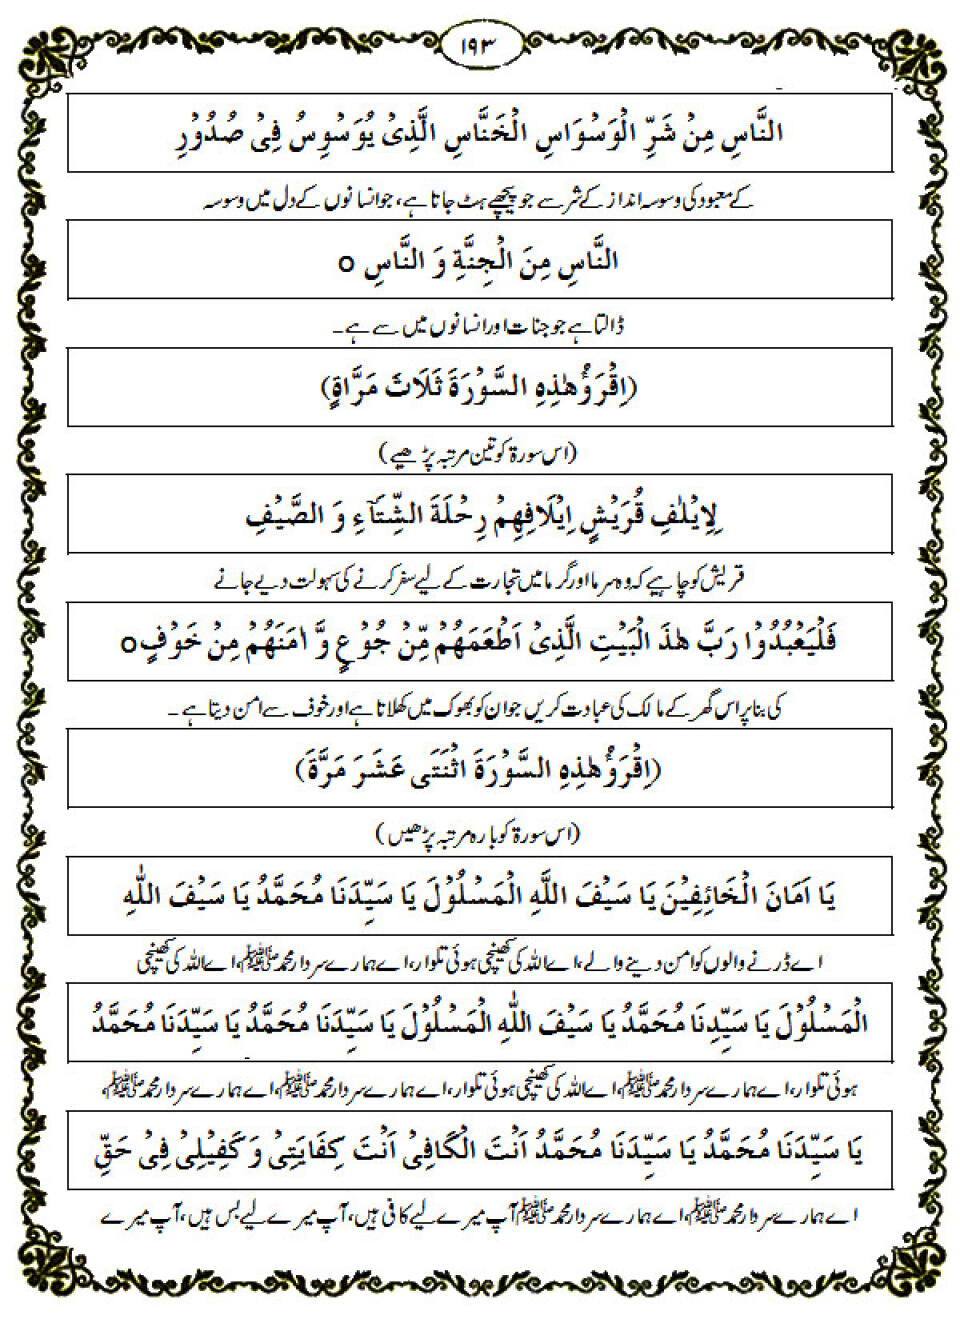 ۱۹۳
النَّاسِ مِنْ شَرِّ الْوَسْوَاسِ الْخَنَّاسِ الَّذِىْ يُوَسْوِسُ فِىْ صُدُوْرِ
کے معبود کی وسوسہ انداز کے شر سے جو پیچھے ہٹ جاتا ہے، جو انسانوں کے دل میں وسوسہ
النَّاسِ مِنَ الْجِنَّةِ وَ النَّاسِ o
ڈالتا ہے جو جنات اور انسانوں میں سے ہے۔
(اِقْرَؤُهٰذِهِ السَّوْرَةَ ثَلَاثَ مَرَّاةٍ)
(اس سورۃ کو تین مرتبہ پڑھیے)
لِاِيْلٰفِ قُرَيْشٍ اِيْلَافِهِمْ رِحْلَةَ الشِّتَآءِ وَ الصَّيْفِ
قریش کو چاہیے کہ وہ سرما اور گرما میں تجارت کے لیے سفر کرنے کی سہولت دیے جانے
فَلْيَعْبُدُوْا رَبَّ هٰذَ الْبَيْتِ الَّذِىْ اَطْعَمَهُمْ مِّنْ جُوْعٍ وَّ اٰمَنَهُمْ مِنْ خَوْفٍo
کی بنا پر اس گھر کے مالک کی عبادت کریں جو ان کو بھوک میں کھلاتا ہے اور خوف سے امن دیتا ہے۔
(اِقْرَؤُهٰذِهِ السَّوْرَةَ اثْنَتَى عَشَرَ مَرَّةَ)
(اس سورۃ کو بارہ مرتبہ پڑھیں)
يَا اَمَانَ الْخَائِفِيْنَ يَا سَيْفَ اللَّهِ الْمَسْلُوْلَ يَا سَيِّدَنَا مُحَمَّدُ يَا سَيْفَ اللّٰهِ
اے ڈرنے والوں کو امن دینے والے، اے اللہ کی کھینچی ہوئی تلوار، اے ہمارے سردار محمد ﷺ، اے اللہ کی کھینچی
الْمَسْلُوْلَ يَا سَيِّدِنَا مُحَمَّدُ يَا سَيْفَ اللّٰهِ الْمَسْلُوْلَ يَا سَيِّدَنَا مُحَمَّدُ يَا سَيِّدَنَا مُحَمَّدُ
ہوئی تلوار، اے ہمارے سردار محمد ﷺ، اے اللہ کی کھینچی ہوئی تلوار، اے ہمارے سردار محمد ﷺ، اے ہمارے سردار محمد ﷺ،
يَا سَيِّدَنَا مُحَمَّدُ يَا سَيِّدَنَا مُحَمَّدُ اَنْتَ الْكَافِىْ اَنْتَ كِفَايَتِىْ وَ كَفِيْلِىْ فِىْ حَقِّ
اے ہمارے سردار محمد ﷺ، اے ہمارے سردار محمد ﷺ آپ میرے لیے کافی ہیں، آپ میرے لیے بس ہیں، آپ میرے